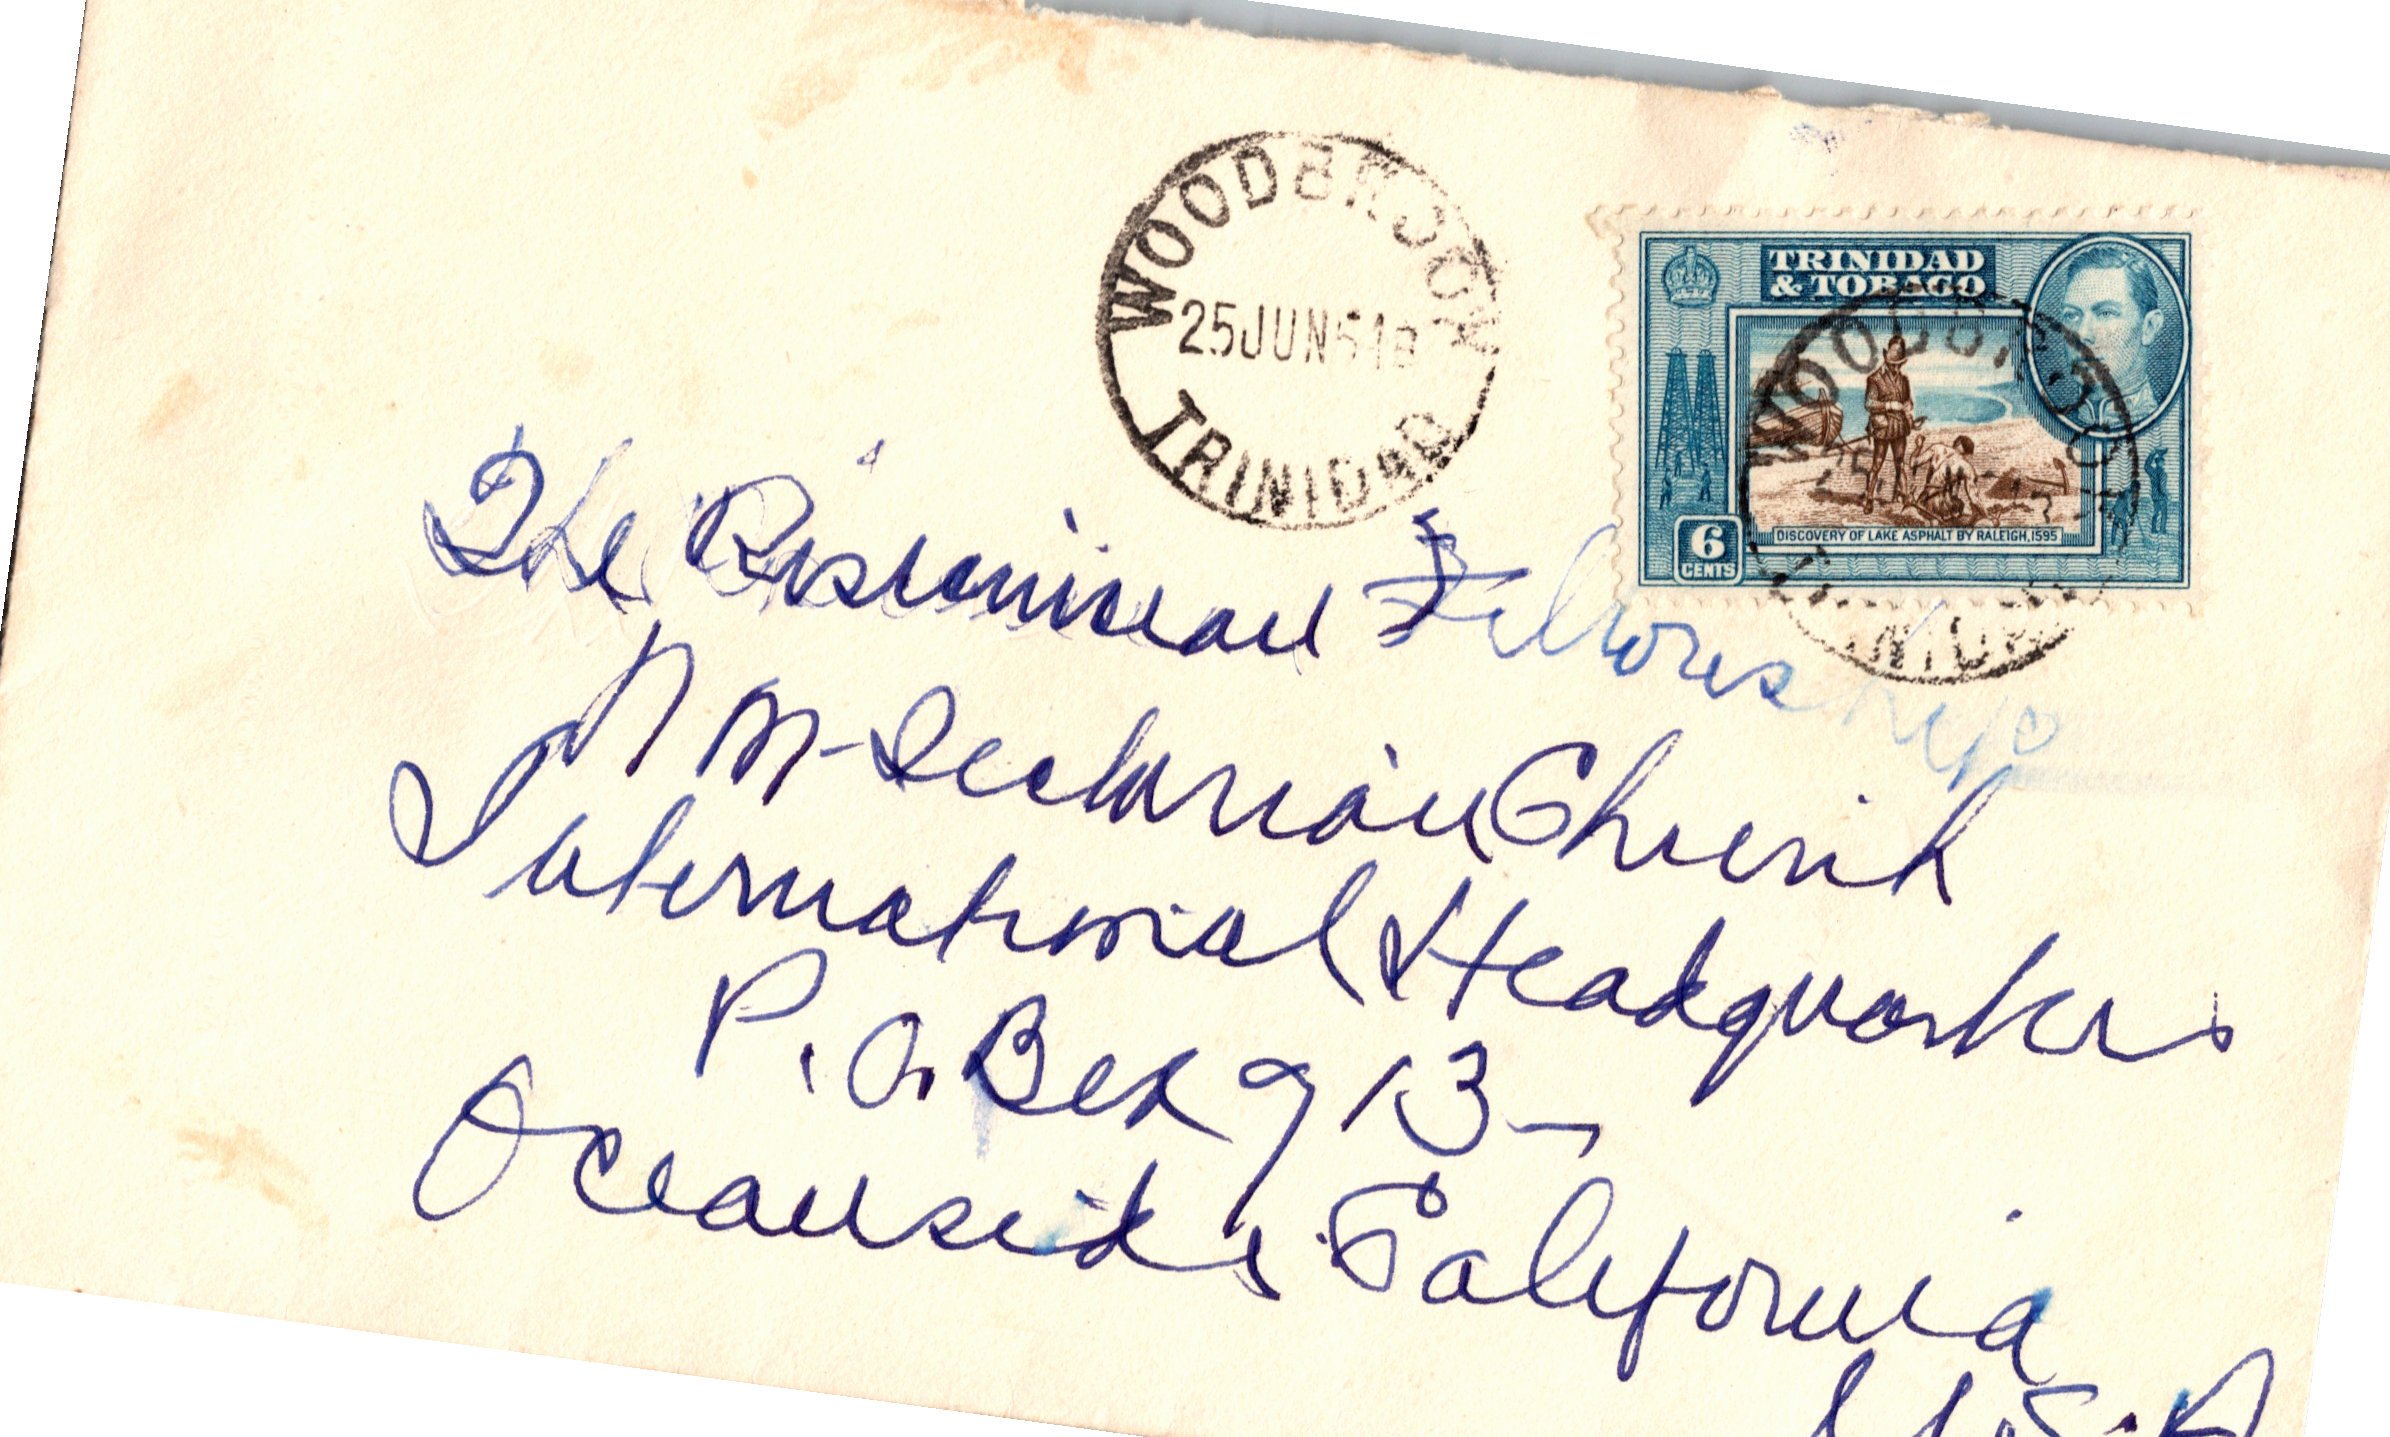 WOODBROOK
25 JUN 51 8
TRINIDAD
TRINIDAD
& TOBAGO
DISCOVERY OF LAKE ASPHALT BY RALEIGH, 1595
6
CENTS
WOODBROOK
The Rosicrucian Fellowship
Non-Sectarian Church
International Headquarters
P.O. Box 913-
Oceanside California
U.S.A